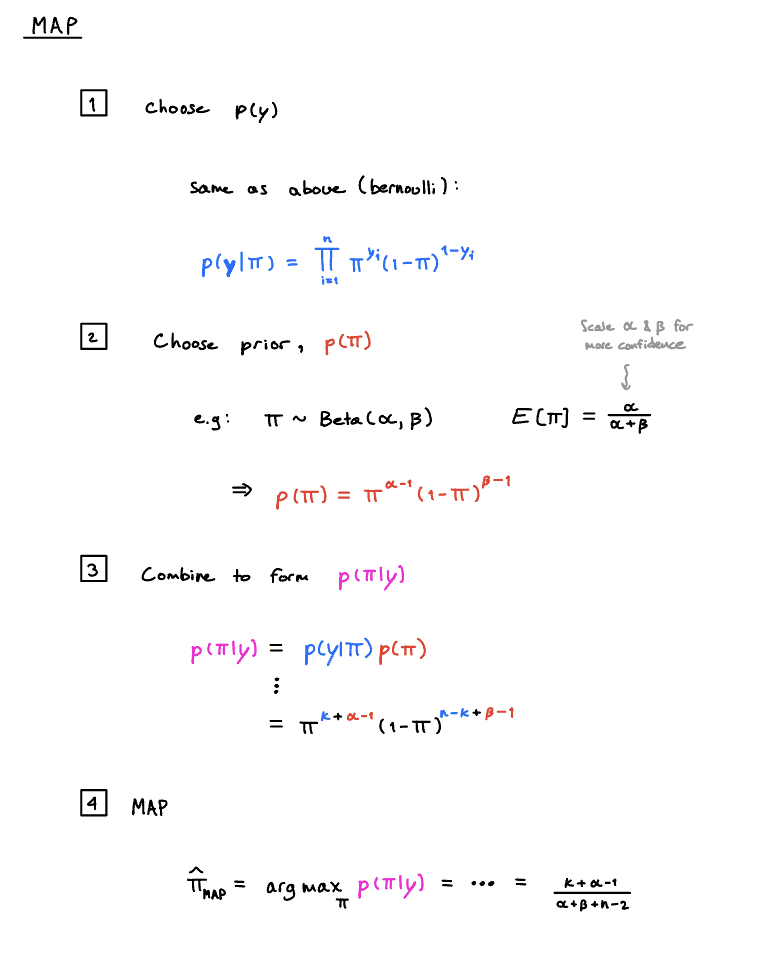 MAP
1 Choose p(y)
Same as above (bernoulli):
p(y|π) = ∏_{i=1}^{n} π^{y_i}(1-π)^{1-y_i}
2 Choose prior, p(π)
Scale α & β for
more confidence
e.g: π ~ Beta(α, β) E[π] = α/(α+β)
⇒ p(π) = π^{α-1}(1-π)^{β-1}
3 Combine to form p(π|y)
p(π|y) = p(y|π)p(π)
⋮
= π^{k+α-1}(1-π)^{n-k+β-1}
4 MAP
π̂_{MAP} = arg max_π p(π|y) = ⋯ = (k+α-1)/(α+β+n-2)